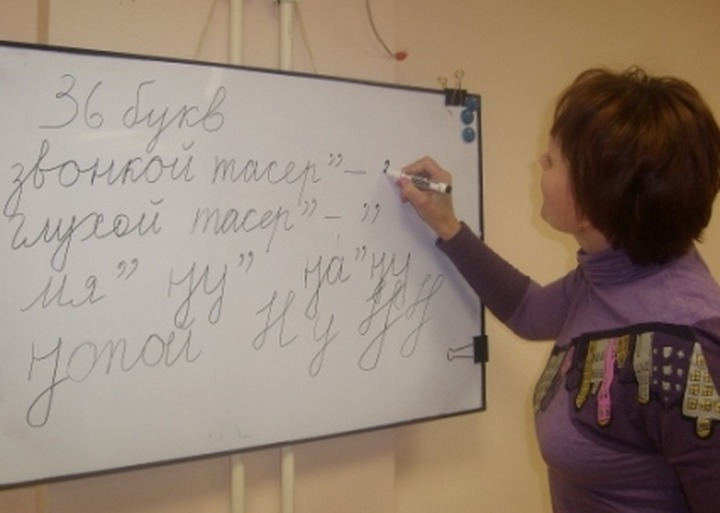 36 букв
звонкой тасер” – ’
глухой тасер” – ”
мя” ӈу” ӈа”ӈу
ӈопой Н у Ӈ Ӈ